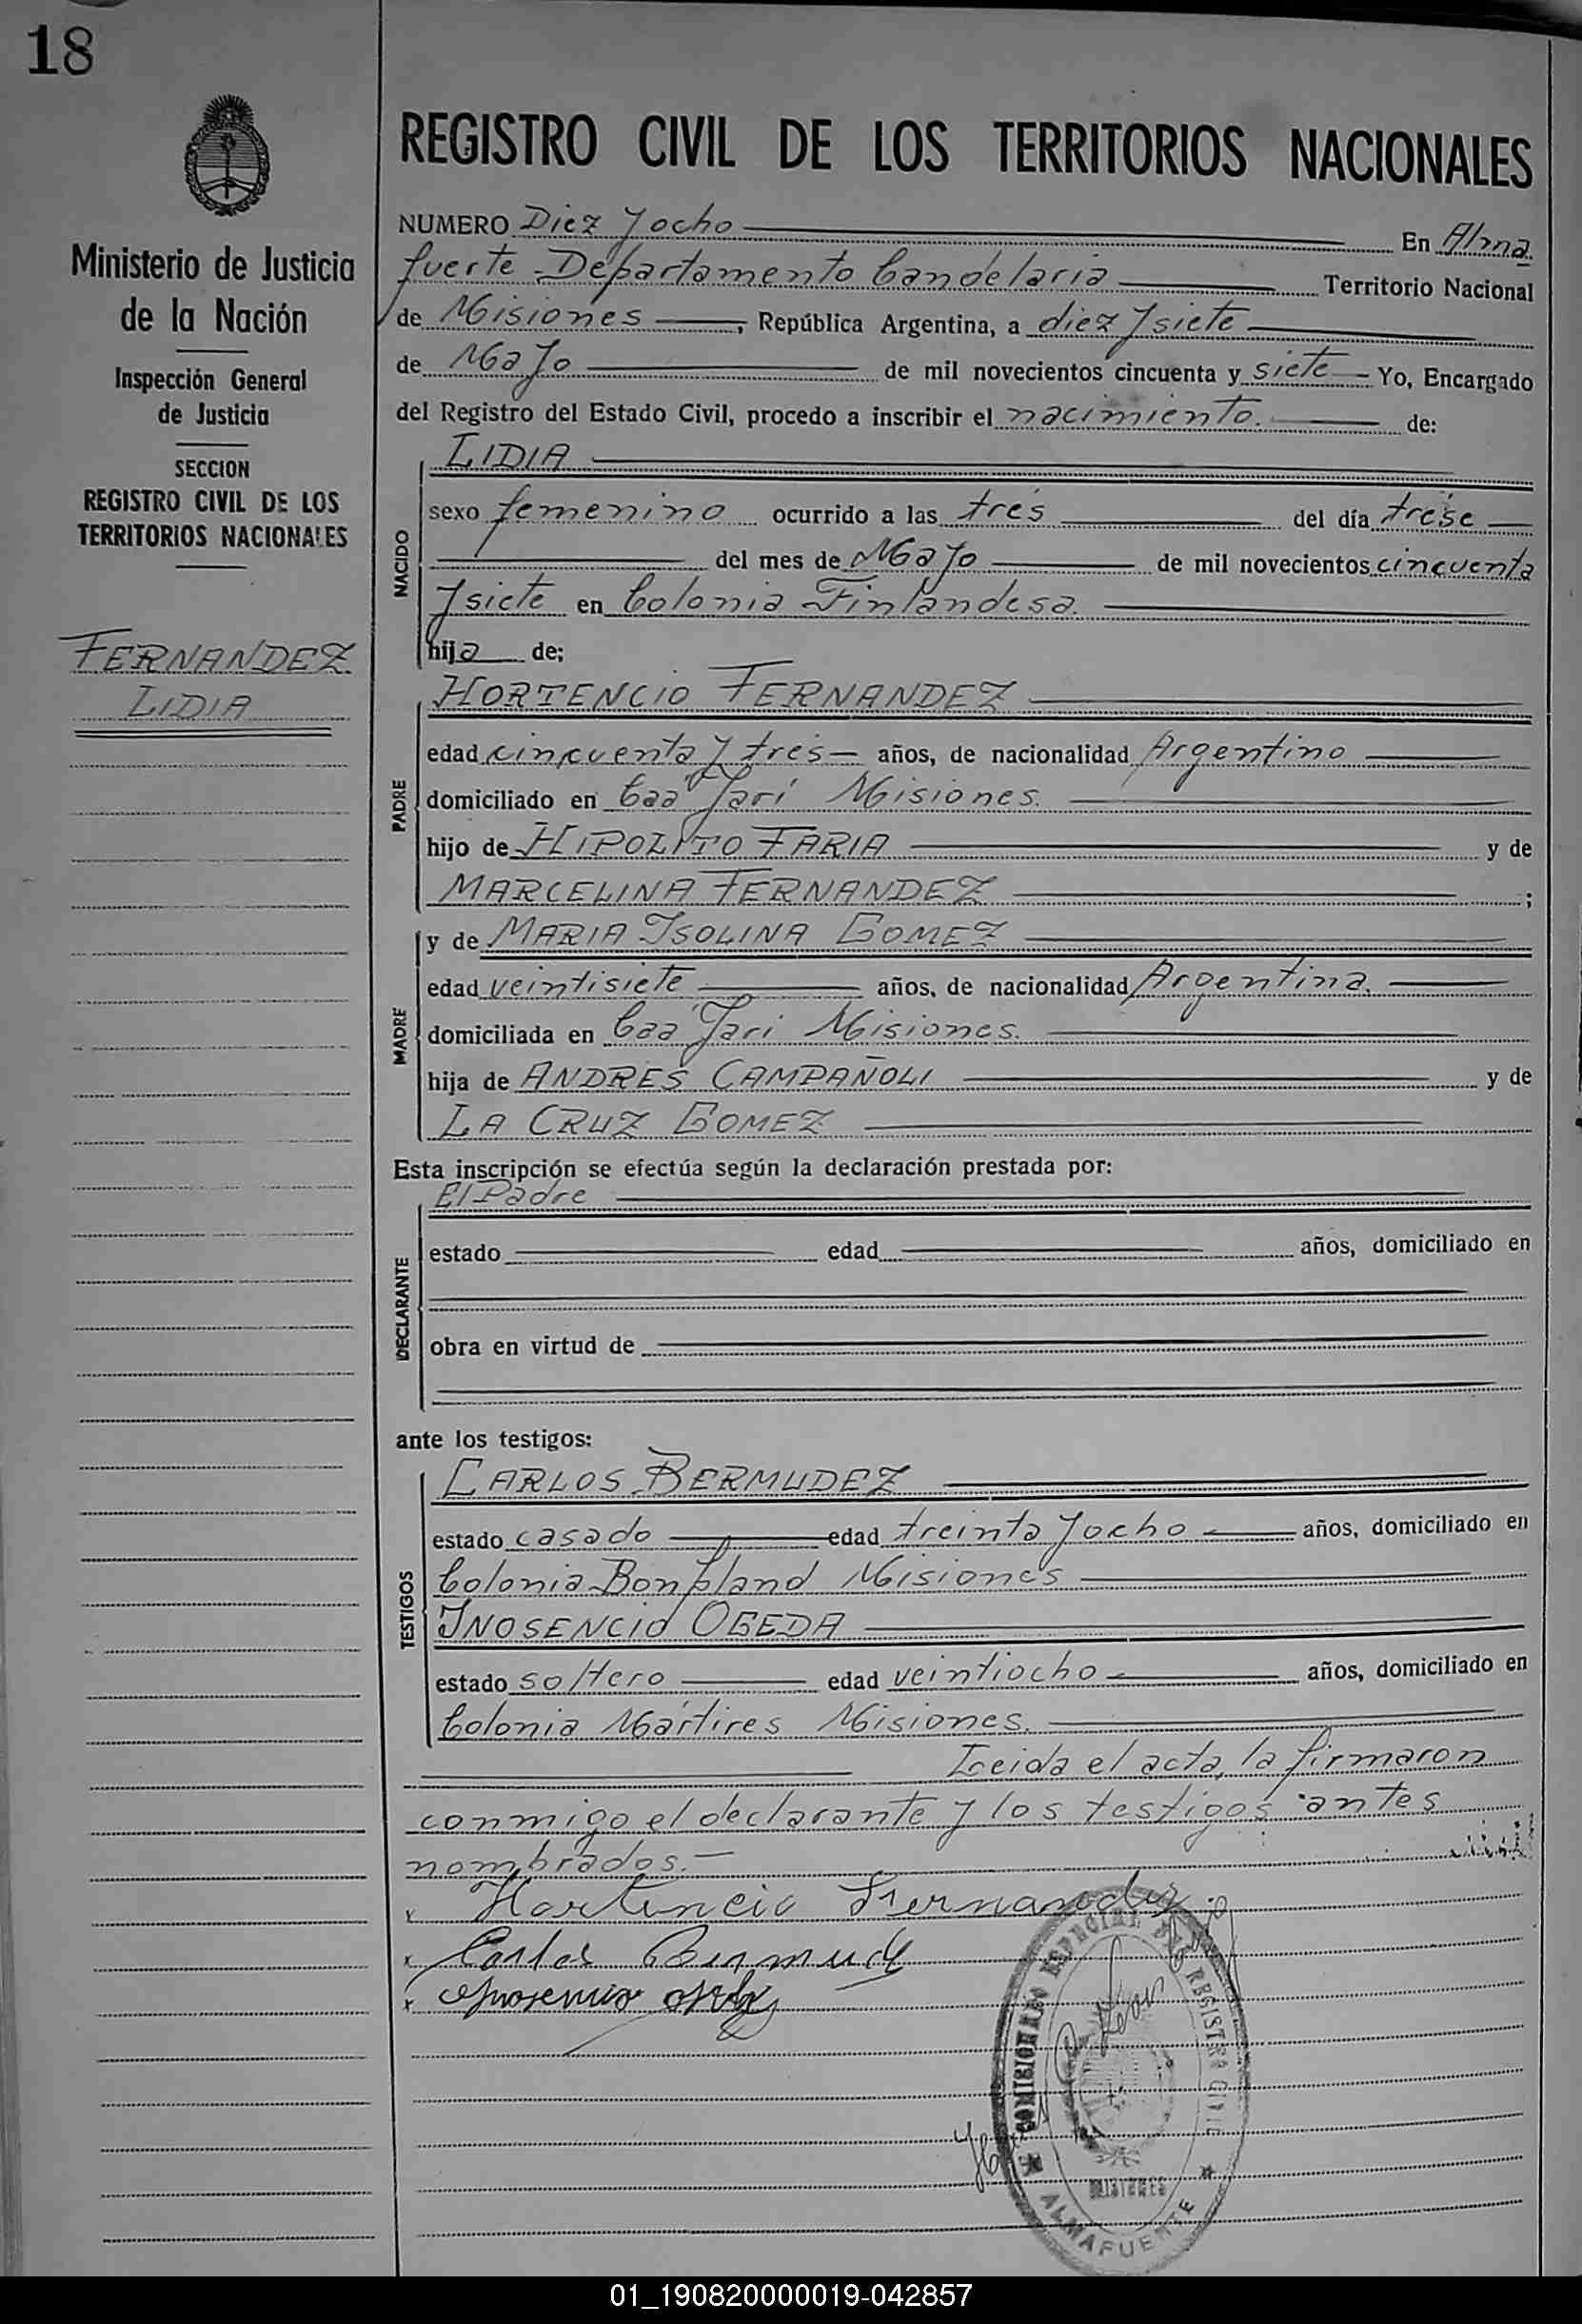 18
Ministerio de Justicia
de la Nación
Inspección General
de Justicia
SECCION
REGISTRO CIVIL DE LOS
TERRITORIOS NACIONALES
FERNANDEZ
LIDIA
REGISTRO CIVIL DE LOS TERRITORIOS NACIONALES
NUMERO Diez y ocho En Alma
fuerte Departamento Candelaria Territorio Nacional
de Misiones, República Argentina, a diez y siete
de Mayo de mil novecientos cincuenta y siete Yo, Encargado
del Registro del Estado Civil, procedo a inscribir el nacimiento. de:
NACIDO
LIDIA
sexo femenino ocurrido a las tres del día trese
del mes de Mayo de mil novecientos cincuenta
y siete en Colonia Finlandesa.
hija de:
PADRE
HORTENCIO FERNANDEZ
edad cincuenta y tres años, de nacionalidad Argentino
domiciliado en Caa Yarí Misiones.
hijo de HIPOLITO FARIA y de
MARCELINA FERNANDEZ ;
MADRE
y de MARIA ISOLINA GOMEZ
edad veintisiete años, de nacionalidad Argentina.
domiciliada en Caa Yari Misiones.
hija de ANDRES CAMPAÑOLI y de
LA CRUZ GOMEZ
Esta inscripción se efectúa según la declaración prestada por:
DECLARANTE
El Padre
estado edad años, domiciliado en
obra en virtud de
ante los testigos:
TESTIGOS
CARLOS BERMUDEZ
estado casado edad treinta y ocho años, domiciliado en
Colonia Bonpland Misiones
INOSENCIO OGEDA
estado soltero edad veintiocho años, domiciliado en
Colonia Mártires Misiones.
Leida el acta, la firmaron
conmigo el declarante y los testigos antes
nombrados.—
x Hortencio Fernandez
x Carlos Bermudez
x
COMISIONADO ESPECIAL REGISTRO CIVIL
MISIONES
ALMAFUERTE
01_190820000019-042857